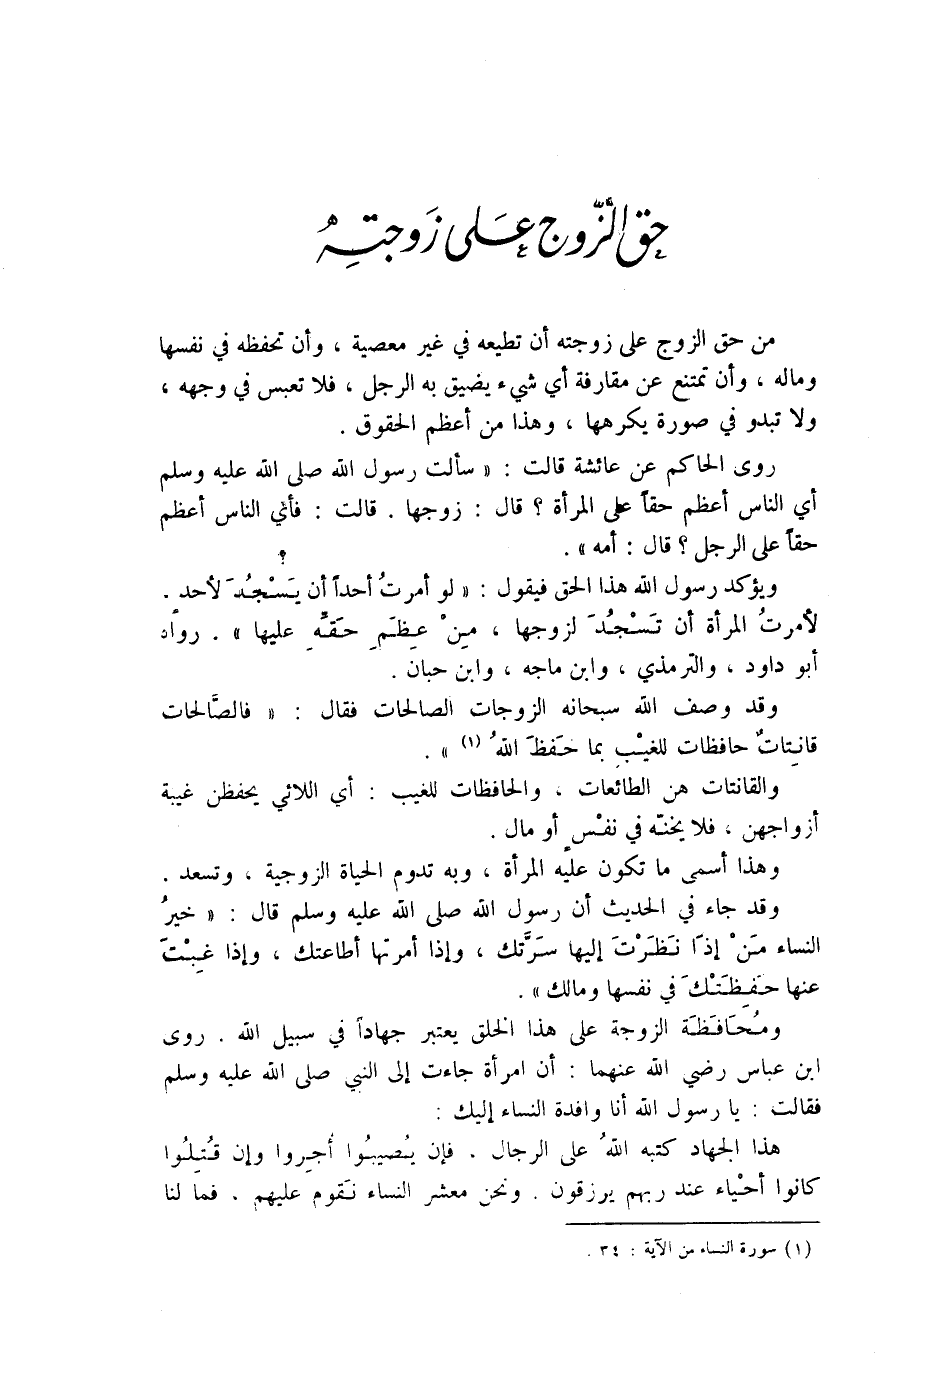 حق الزَّوج عَلى زَوجتِهِ
من حق الزوج على زوجته أن تطيعه في غير معصية ، وأن تحفظه في نفسها
وماله ، وأن تمتنع عن مقارفة أي شيء يضيق به الرجل ، فلا تعبس في وجهه ،
ولا تبدو في صورة يكرهها ، وهذا من أعظم الحقوق .
روى الحاكم عن عائشة قالت : « سألت رسول الله صلى الله عليه وسلم
أي الناس أعظم حقاً على المرأة ؟ قال : زوجها . قالت : فأي الناس أعظم
حقاً على الرجل ؟ قال : أمه » .
ويؤكد رسول الله هذا الحق فيقول : « لو أمرتُ أحداً أن يَسْجُدَ لأحدٍ .
لأمرتُ المرأة أن تَسْجُدَ لزوجها ، مِنْ عِظَمِ حَقِّهِ عليها » . رواه
أبو داود ، والترمذي ، وابن ماجه ، وابن حبان .
وقد وصف الله سبحانه الزوجات الصالحات فقال : « فالصَّالحات
قانِتاتٌ حافظات للغيْبِ بما حَفظَ اللهُ (١) » .
والقانتات هن الطائعات ، والحافظات للغيب : أي اللائي يحفظن غيبة
أزواجهن ، فلا يخنّه في نفْسٍ أو مال .
وهذا أسمى ما تكون عليه المرأة ، وبه تدوم الحياة الزوجية ، وتسعد .
وقد جاء في الحديث أن رسول الله صلى الله عليه وسلم قال : « خيرُ
النساء مَنْ إذَا نَظَرْتَ إليها سَرَّتك ، وإذا أمرتها أطاعتك ، وإذا غِبْتَ
عنها حَفِظَتْكَ في نفسها ومالك » .
ومُحَافَظَة الزوجة على هذا الخلق يعتبر جهاداً في سبيل الله . روى
ابن عباس رضي الله عنهما : أن امرأة جاءت إلى النبي صلى الله عليه وسلم
فقالت : يا رسول الله أنا وافدة النساء إليك :
هذا الجهاد كتبه اللهُ على الرجال . فإن يُصيبُوا أُجِروا وإن قُتِلُوا
كانوا أحْياء عند ربهم يرزقون . ونحن معشر النساء نَقوم عليهم . فما لنا
(١) سورة النساء من الآية : ٣٤ .